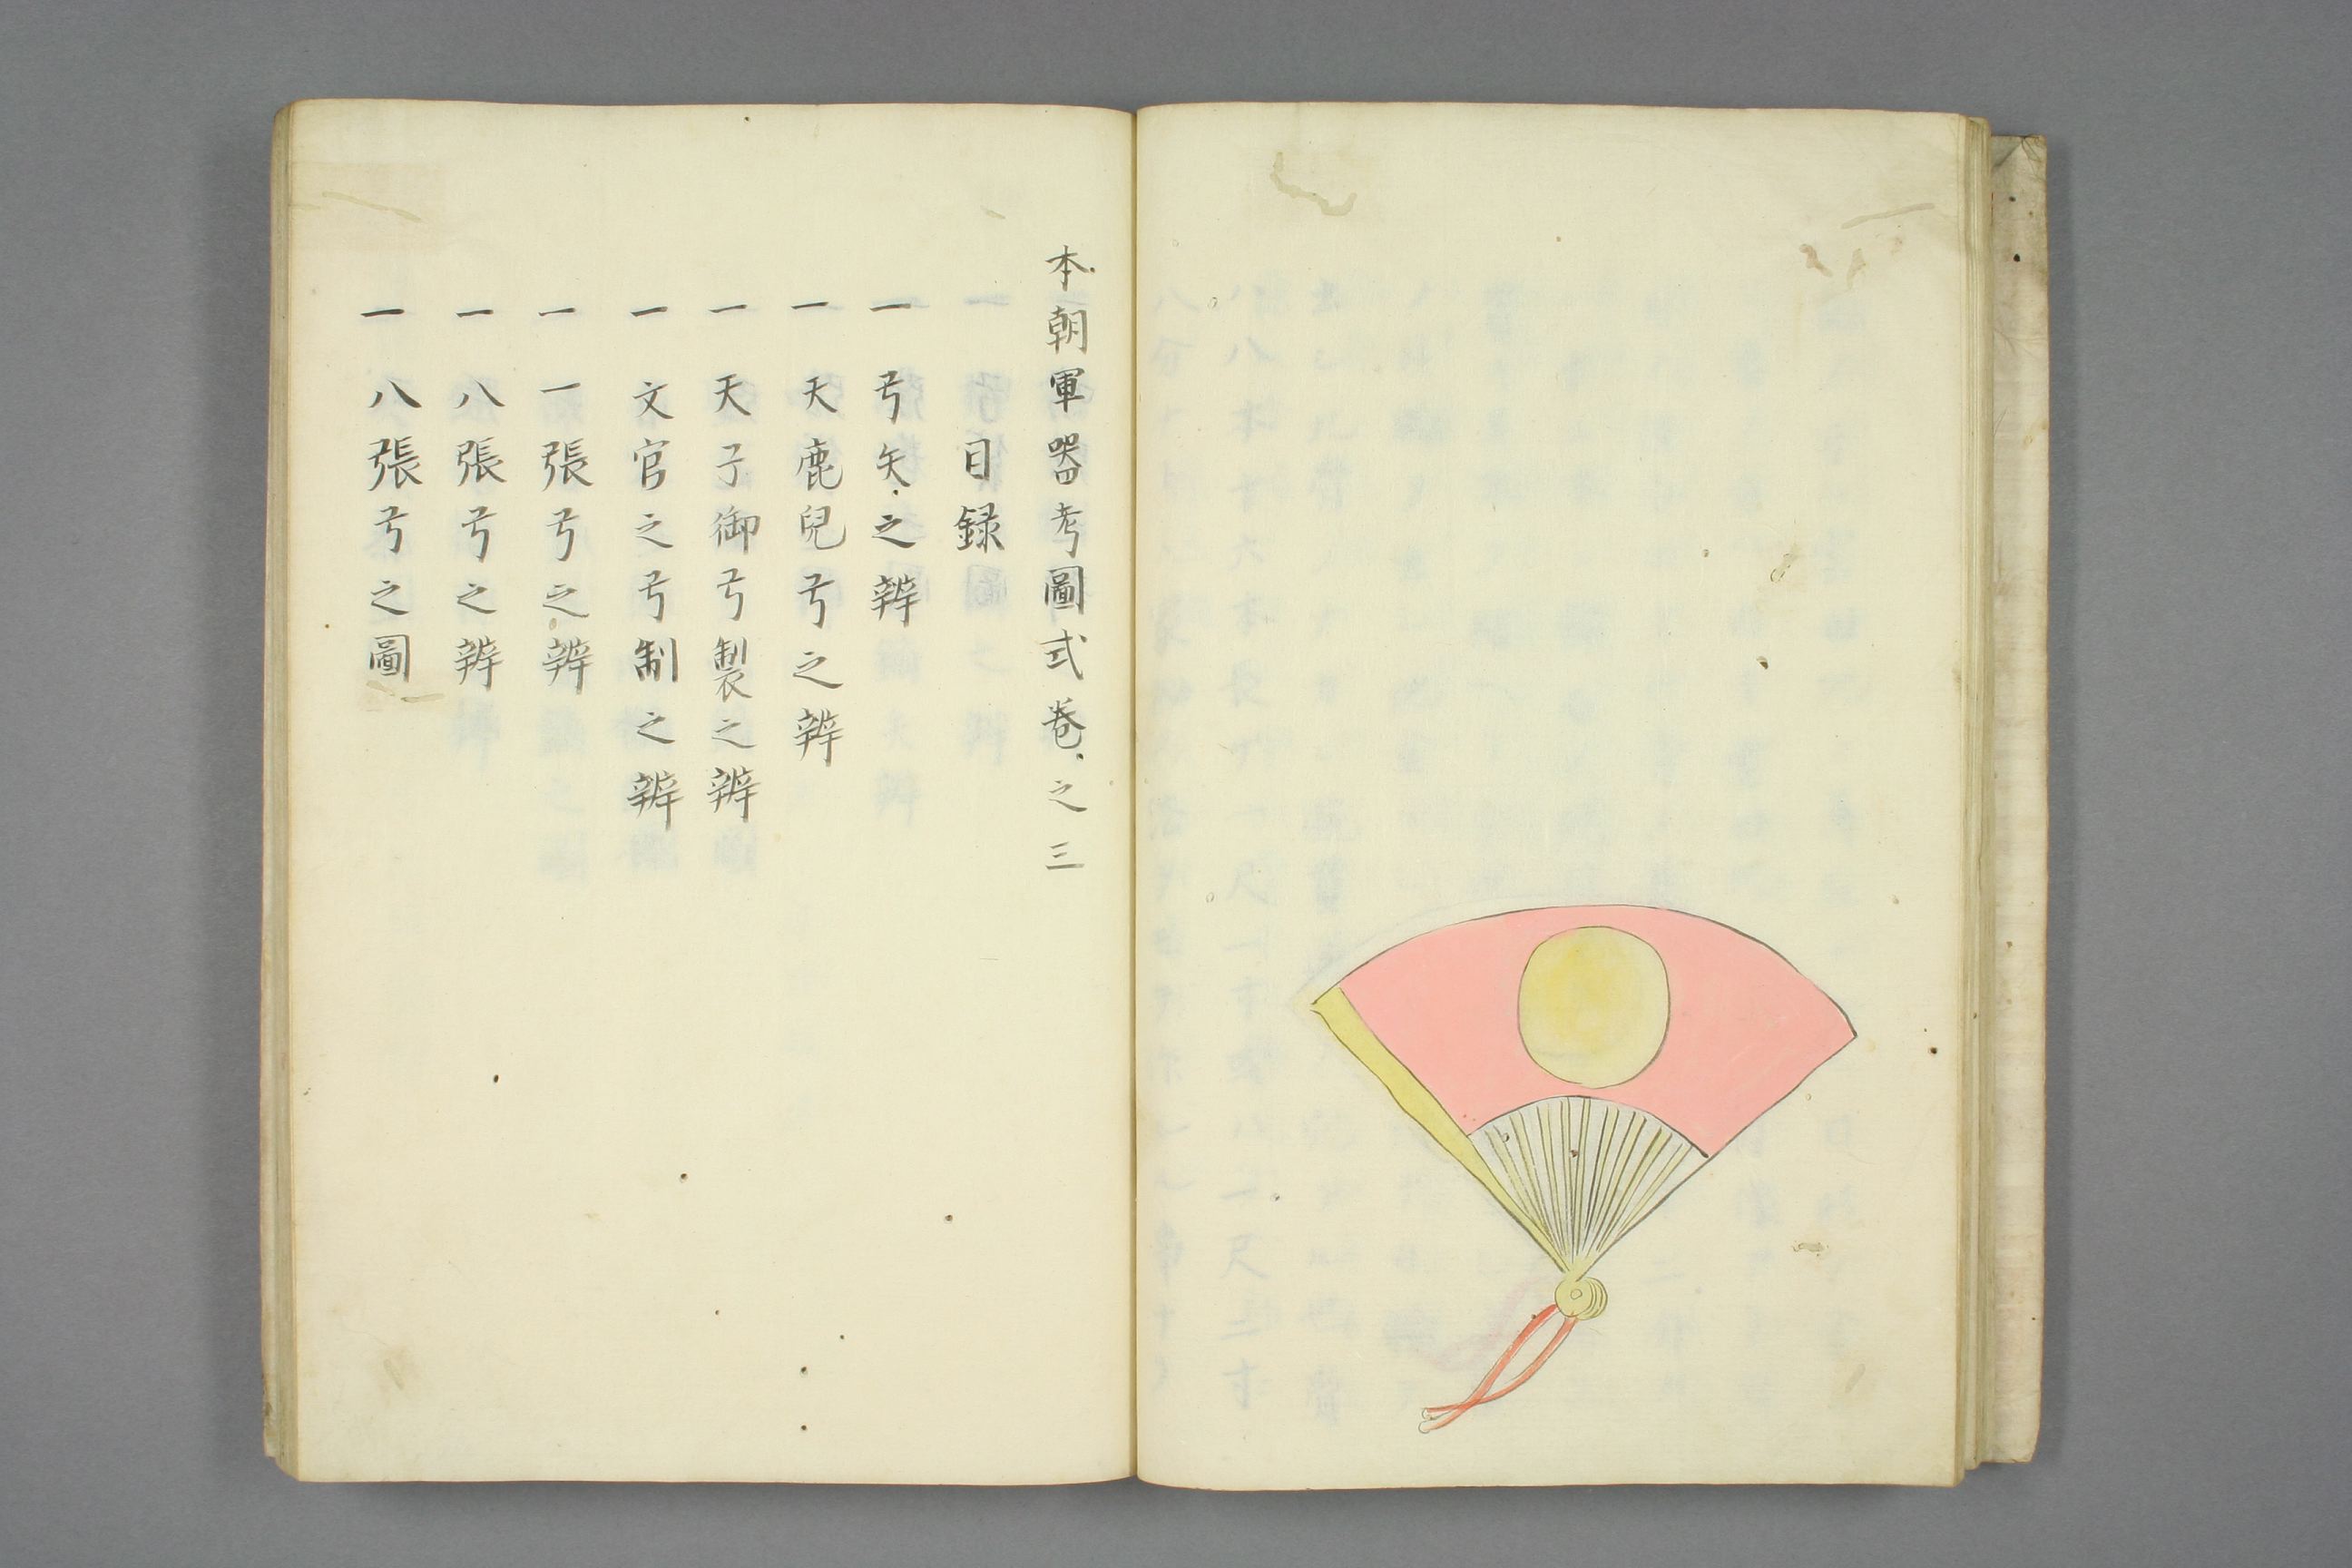 本朝軍器考圖式卷之三
目録
一 弓矢之辨
一 天鹿兒弓之辨
一 天子御弓製之辨
一 文官之弓制之辨
一 一張弓之辨
一 八張弓之辨
一 八張弓之圖